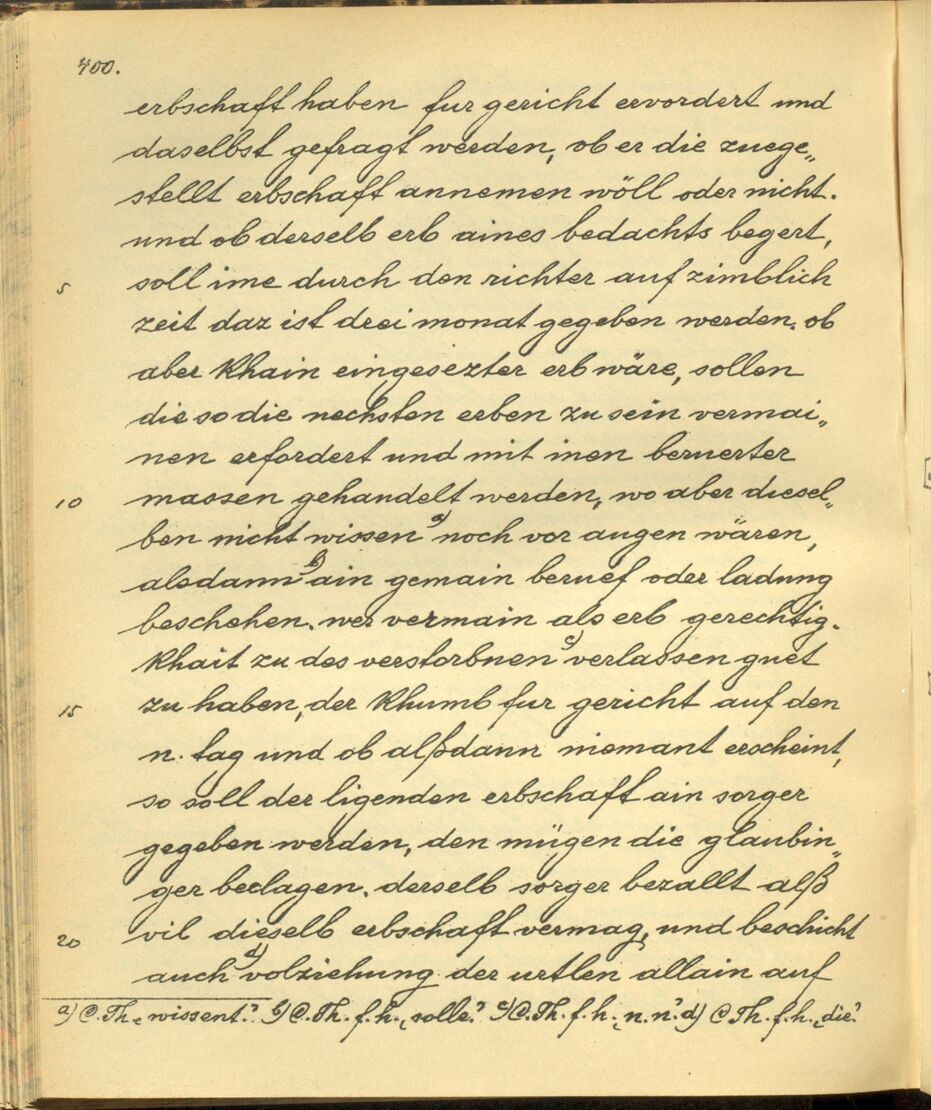 400.
erbschaft haben fur gericht ervordert und
daselbst gefragt werden, ob er die zuege„
stellt erbschaft annemen wöll oder nicht.
und ob derselb erb aines bedachts begert,
5 soll ime durch den richter auf zimblich
zeit daz ist drei monat gegeben werden. ob
aber khain eingesezter erb wäre, sollen
die so die nechsten erben zu sein vermai„
nen erfordert und mit inen beruerter
10 massen gehandelt werden, wo aber diesel„
ben nicht wissen a) noch vor augen wären,
alsdann b) ain gemain beruef oder ladung
beschehen. wer vermain als erb gerechtig-
khait zu des verstorbnen c) verlassen guet
15 zu haben, der khumb fur gericht auf den
n. tag und ob alßdann niemant erscheint,
so soll der ligenden erbschaft ain sorger
gegeben werden, den mügen die glaubin„
ger beclagen. derselb sorger bezallt alß
20 vil dieselb erbschaft vermag, und beschicht
auch d) volziehung der urtlen allain auf
a) C. Th. „wissent.“ b) C. Th. f. h. „solle.“ c) C. Th. f. h. „n. n.“ d) C Th. f. h. „die“